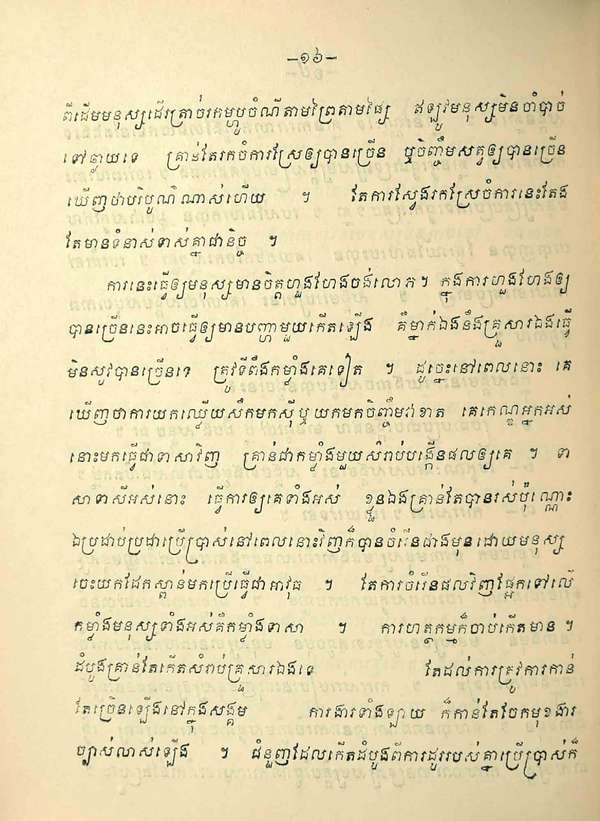 –១៦–
ពីដើមមនុស្សដើរត្រាច់រកម្ហូបចំណីតាមព្រៃតាមផ្សៃ ឥឡូវមនុស្សមិនចាំបាច់
ទៅឆ្ងាយទេ គ្រាន់តែរកចំការស្រែឲ្យបានច្រើន ឬចិញ្ចឹមសត្វឲ្យបានច្រើន
ឃើញថាបរិបូណ៌ណាស់ហើយ ។ តែការស្វែងរកស្រែចំការនេះតែង
តែមានទំនាស់ទាស់គ្នាជានិច្ច ។
ការនេះធ្វើឲ្យមនុស្សមានចិត្តហួងហែងចង់លោភ។ ក្នុងការហួងហែងឲ្យ
បានច្រើននេះអាចធ្វើឲ្យមានបញ្ហាមួយកើតឡើង គឺម្នាក់ឯងនឹងគ្រួសារឯងធ្វើ
មិនសូវបានច្រើនទេ? ត្រូវទីពឹងកម្លាំងគេទៀត ។ ដូច្នេះនៅពេលនោះ គេ
ឃើញថាការយកឈ្លើយសឹកមកស៊ីឬយកមកចិញ្ចឹមវាខាត គេកេណ្ឌអ្នកអស់
នោះមកធ្វើជាទាសាវិញ គ្រាន់ជាកម្លាំងមួយសំរាប់បង្កើនផលឲ្យគេ ។ ទា
សាទាសីអស់នោះ ធ្វើការឲ្យគេទាំងអស់ ខ្លួនឯងគ្រាន់តែបានរស់ប៉ុណ្ណោះ
ឯប្រដាប់ប្រដាប្រើប្រាស់នៅពេលនោះវិញក៏បានចំរើនជាងមុនដោយមនុស្ស
ចេះយកដែកស្ពាន់មកប្រើធ្វើជាអាវុធ ។ តែការចំរើនផលវិញផ្អែកទៅលើ
កម្លាំងមនុស្សទាំងអស់គឺកម្លាំងទាសា ។ ការហត្ថកម្មក៏ចាប់កើតមាន ។
ដំបូងគ្រាន់តែកើតសំរាប់គ្រួសារឯងទេ តែដល់ការត្រូវការកាន់
តែច្រើនឡើងនៅក្នុងសង្គម ការងារទាំងឡាយ ក៏កាន់តែចែកមុខងារ
ច្បាស់លាស់ឡើង ។ ជំនួញដែលកើតដំបូងពីការដូររបស់គ្នាប្រើប្រាស់ក៏